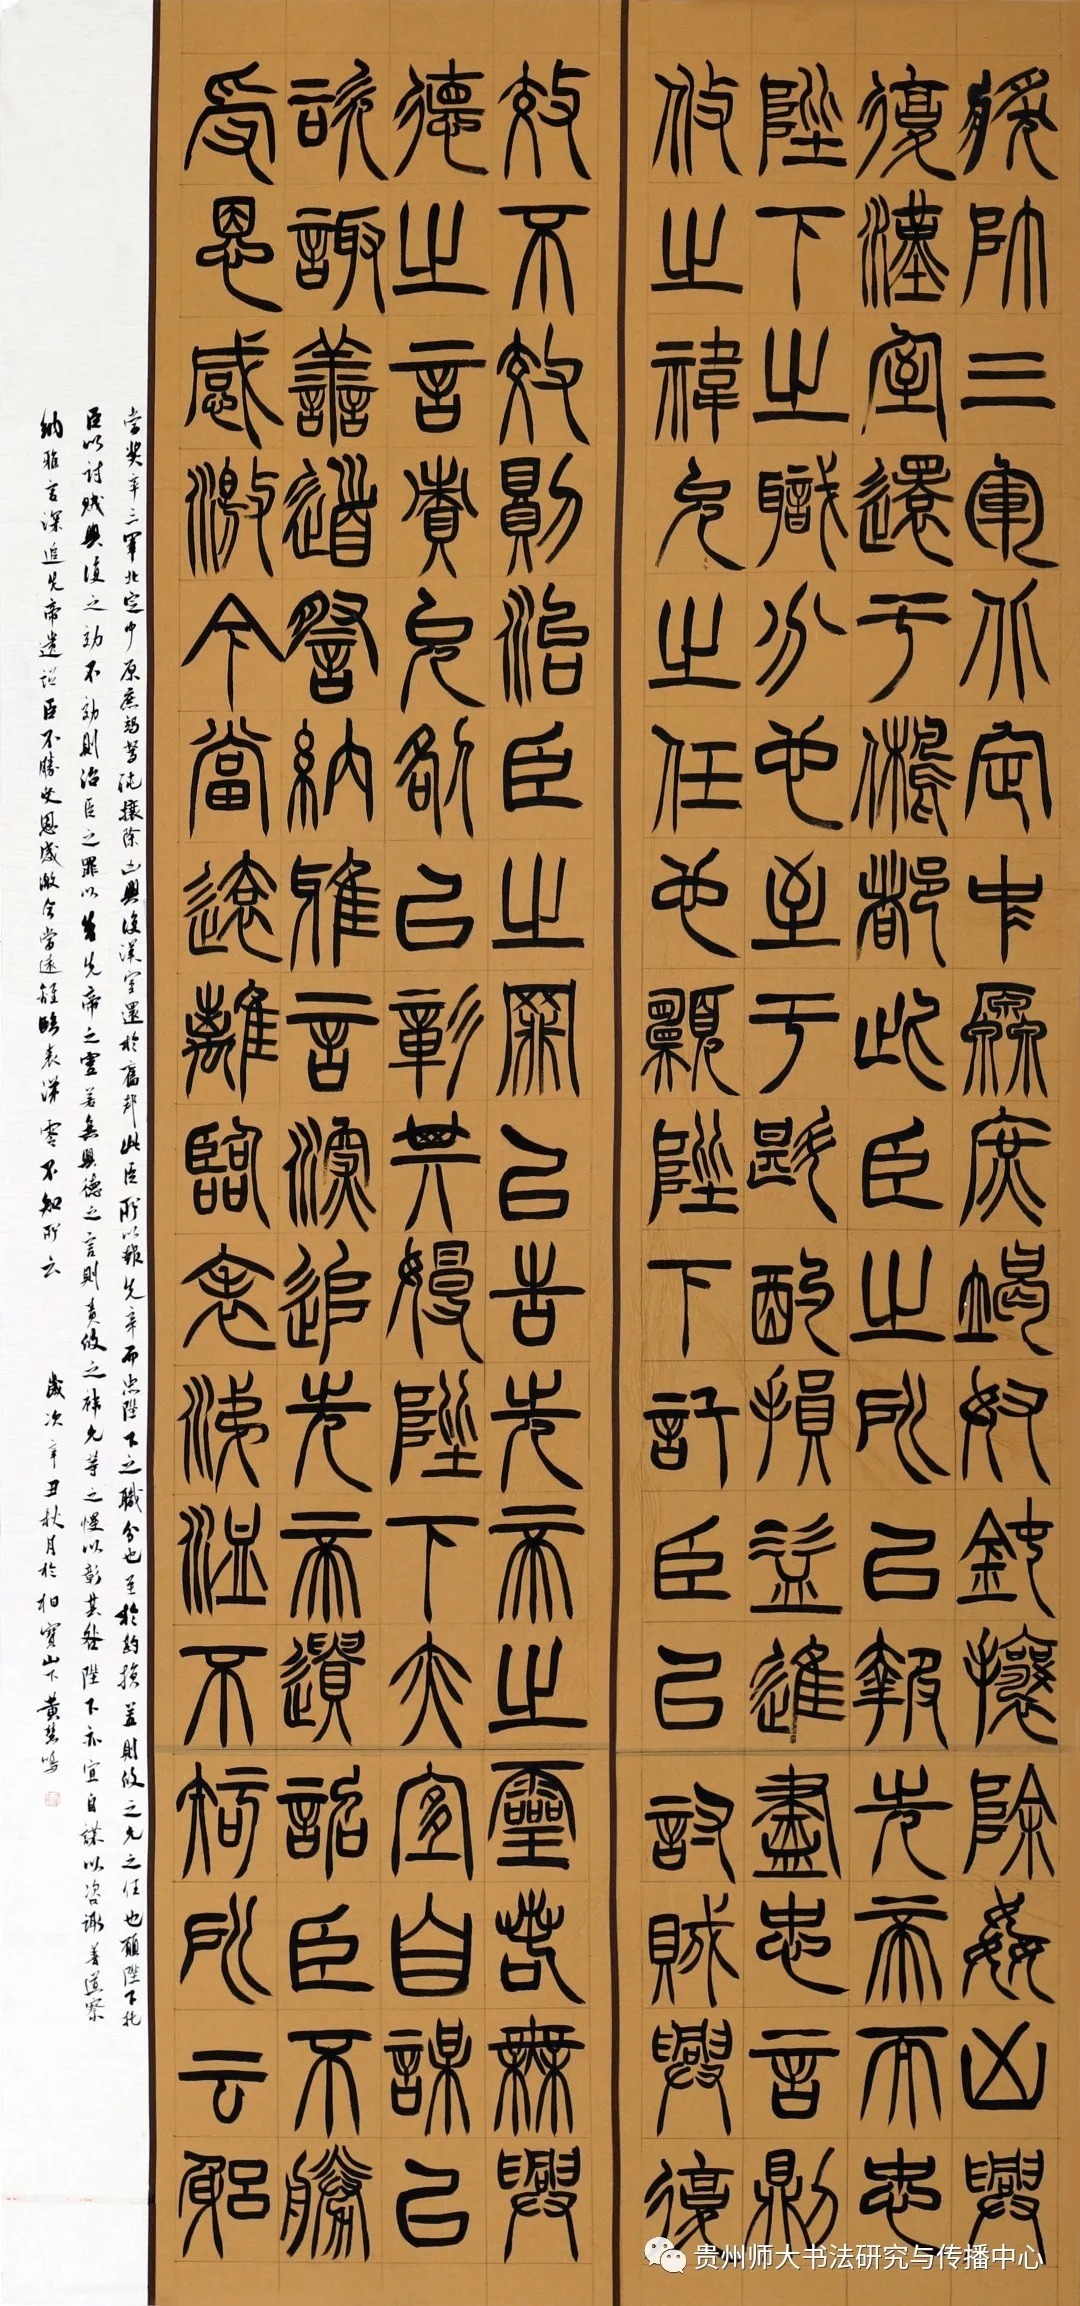 獎帥三軍北定中原庶竭駑鈍攘除姦凶興
復漢室還于舊都此臣之所以報先帝而忠
陛下之職分也至于斟酌損益進盡忠言則
攸之禕允之任也願陛下託臣以討賊興復
效不效則治臣之罪以告先帝之靈若無興
德之言責允以彰其慢陛下亦宜自謀以
諮諏善道察納雅言深追先帝遺詔臣不勝
受恩感激今當遠離臨表涕泣不知所云
當奖率三軍北定中原庶竭駑鈍攘除凶興復漢室還於舊邦此臣所以報先帝而忠陛下之職分也至於酌損益則攸之允之任也願陛下托
臣以討賊興復之効不効則治臣之罪以告先帝之靈若無興德之言則責攸之禕允等之慢以彰其咎陛下亦宜自謀以咨諏善道察
納雅言深追先帝遺詔臣不勝受恩感激今當遠離臨表涕零不知所云
歲次辛丑秋月於相寶山下黃鳴
贵州师大书法研究与传播中心